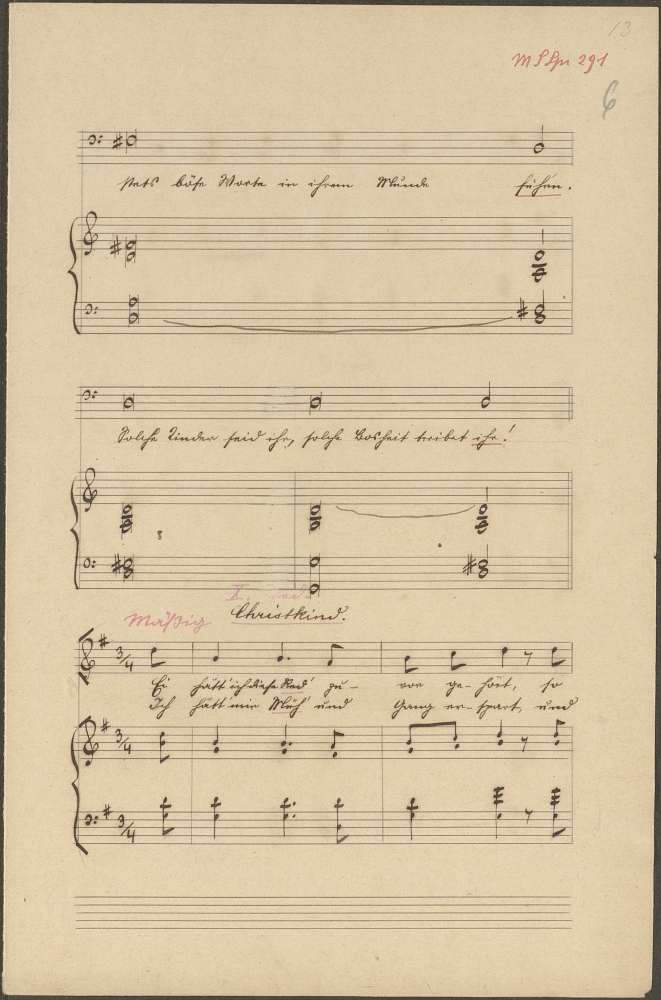 13
MS Spr 291
6
stets böse Worte in ihrem Munde führen.
Solche Kinder seid ihr, solche Bosheit treibet ihr!
II.
Mäßig Christkind.
3/4
Ei hätt' ich diese Red' zu- vor ge-hört, so
Ich hätt mir Müh' und Gang er-spart, und
3/4
3/4